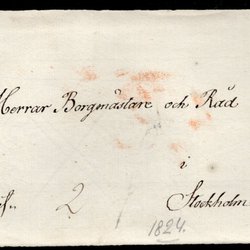 Herrar Borgmästare och Råd
i
2 Stockholm
1824.